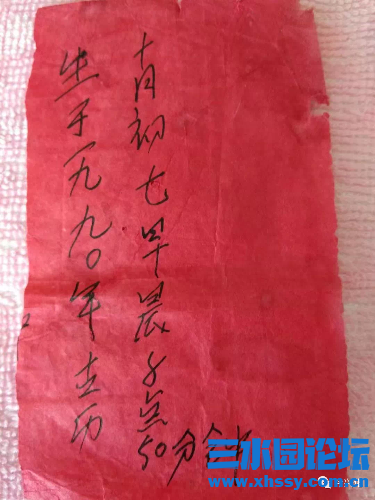 生于一九九〇年古历
十月初七早晨8点50分
三水园论坛
www.xhssy.com.cn